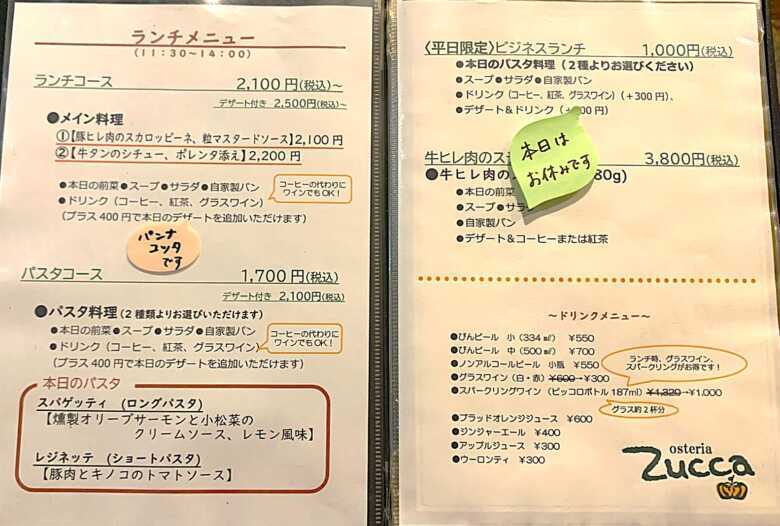 ランチメニュー
(11:30~14:00)
ランチコース 2,100円(税込)~
デザート付き 2,500円(税込)~
●メイン料理
①【豚ヒレ肉のスカロッピーネ、粒マスタードソース】2,100円
②【牛タンのシチュー、ポレンタ添え】2,200円
●本日の前菜●スープ●サラダ●自家製パン
●ドリンク(コーヒー、紅茶、グラスワイン)
(プラス400円で本日のデザートを追加いただけます)
コーヒーの代わりに
ワインでもOK!
パンナ
コッタ
です
パスタコース 1,700円(税込)
デザート付き 2,100円(税込)
●パスタ料理(2種類よりお選びいただけます)
●本日の前菜●スープ●サラダ●自家製パン
●ドリンク(コーヒー、紅茶、グラスワイン)
(プラス400円で本日のデザートを追加いただけます)
コーヒーの代わりに
ワインでもOK!
本日のパスタ
スパゲッティ (ロングパスタ)
【燻製オリーブサーモンと小松菜の
クリームソース、レモン風味】
レジネッテ (ショートパスタ)
【豚肉とキノコのトマトソース】
〈平日限定〉ビジネスランチ 1,000円(税込)
●本日のパスタ料理(2種よりお選びください)
●スープ●サラダ●自家製パン
●ドリンク(コーヒー、紅茶、グラスワイン)(+300円)、
●デザート&ドリンク(+ 00円)
本日は
お休みです
牛ヒレ肉のス 3,800円(税込)
●牛ヒレ肉の 80g)
●本日の前
●スープ●サラ
●自家製パン
●デザート&コーヒーまたは紅茶
~ドリンクメニュー~
●びんビール 小(334㎖) ¥550
●びんビール 中(500㎖) ¥700
●ノンアルコールビール 小瓶 ¥550
●グラスワイン(白・赤)¥600→¥300
●スパークリングワイン(ピッコロボトル187ml)¥1,320→¥1,000
ランチ時、グラスワイン、
スパークリングがお得です!
グラス約2杯分
●ブラッドオレンジジュース ¥600
●ジンジャーエール ¥400
●アップルジュース ¥300
●ウーロンティ ¥300
osteria
Zucca